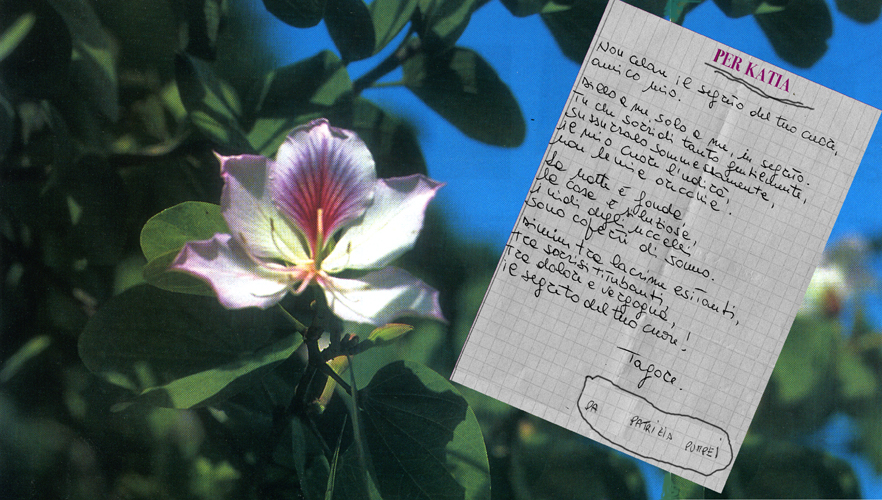 PER KATIA
Non celare il segreto del tuo cuore,
amico mio.
Dillo a me, solo a me, in segreto.
Tu che sorridi tanto gentilmente,
sussurralo sommessamente,
il mio cuore l'udirà,
non le mie orecchie.
La notte è fonda
la casa è silenziosa,
i nidi degli uccelli
sono coperti di sonno.
Dimmi tra lacrime esitanti,
tra sorrisi titubanti,
tra dolore e vergogna,
il segreto del tuo cuore!
Tagore.
DA PATRIZIA POMPEI